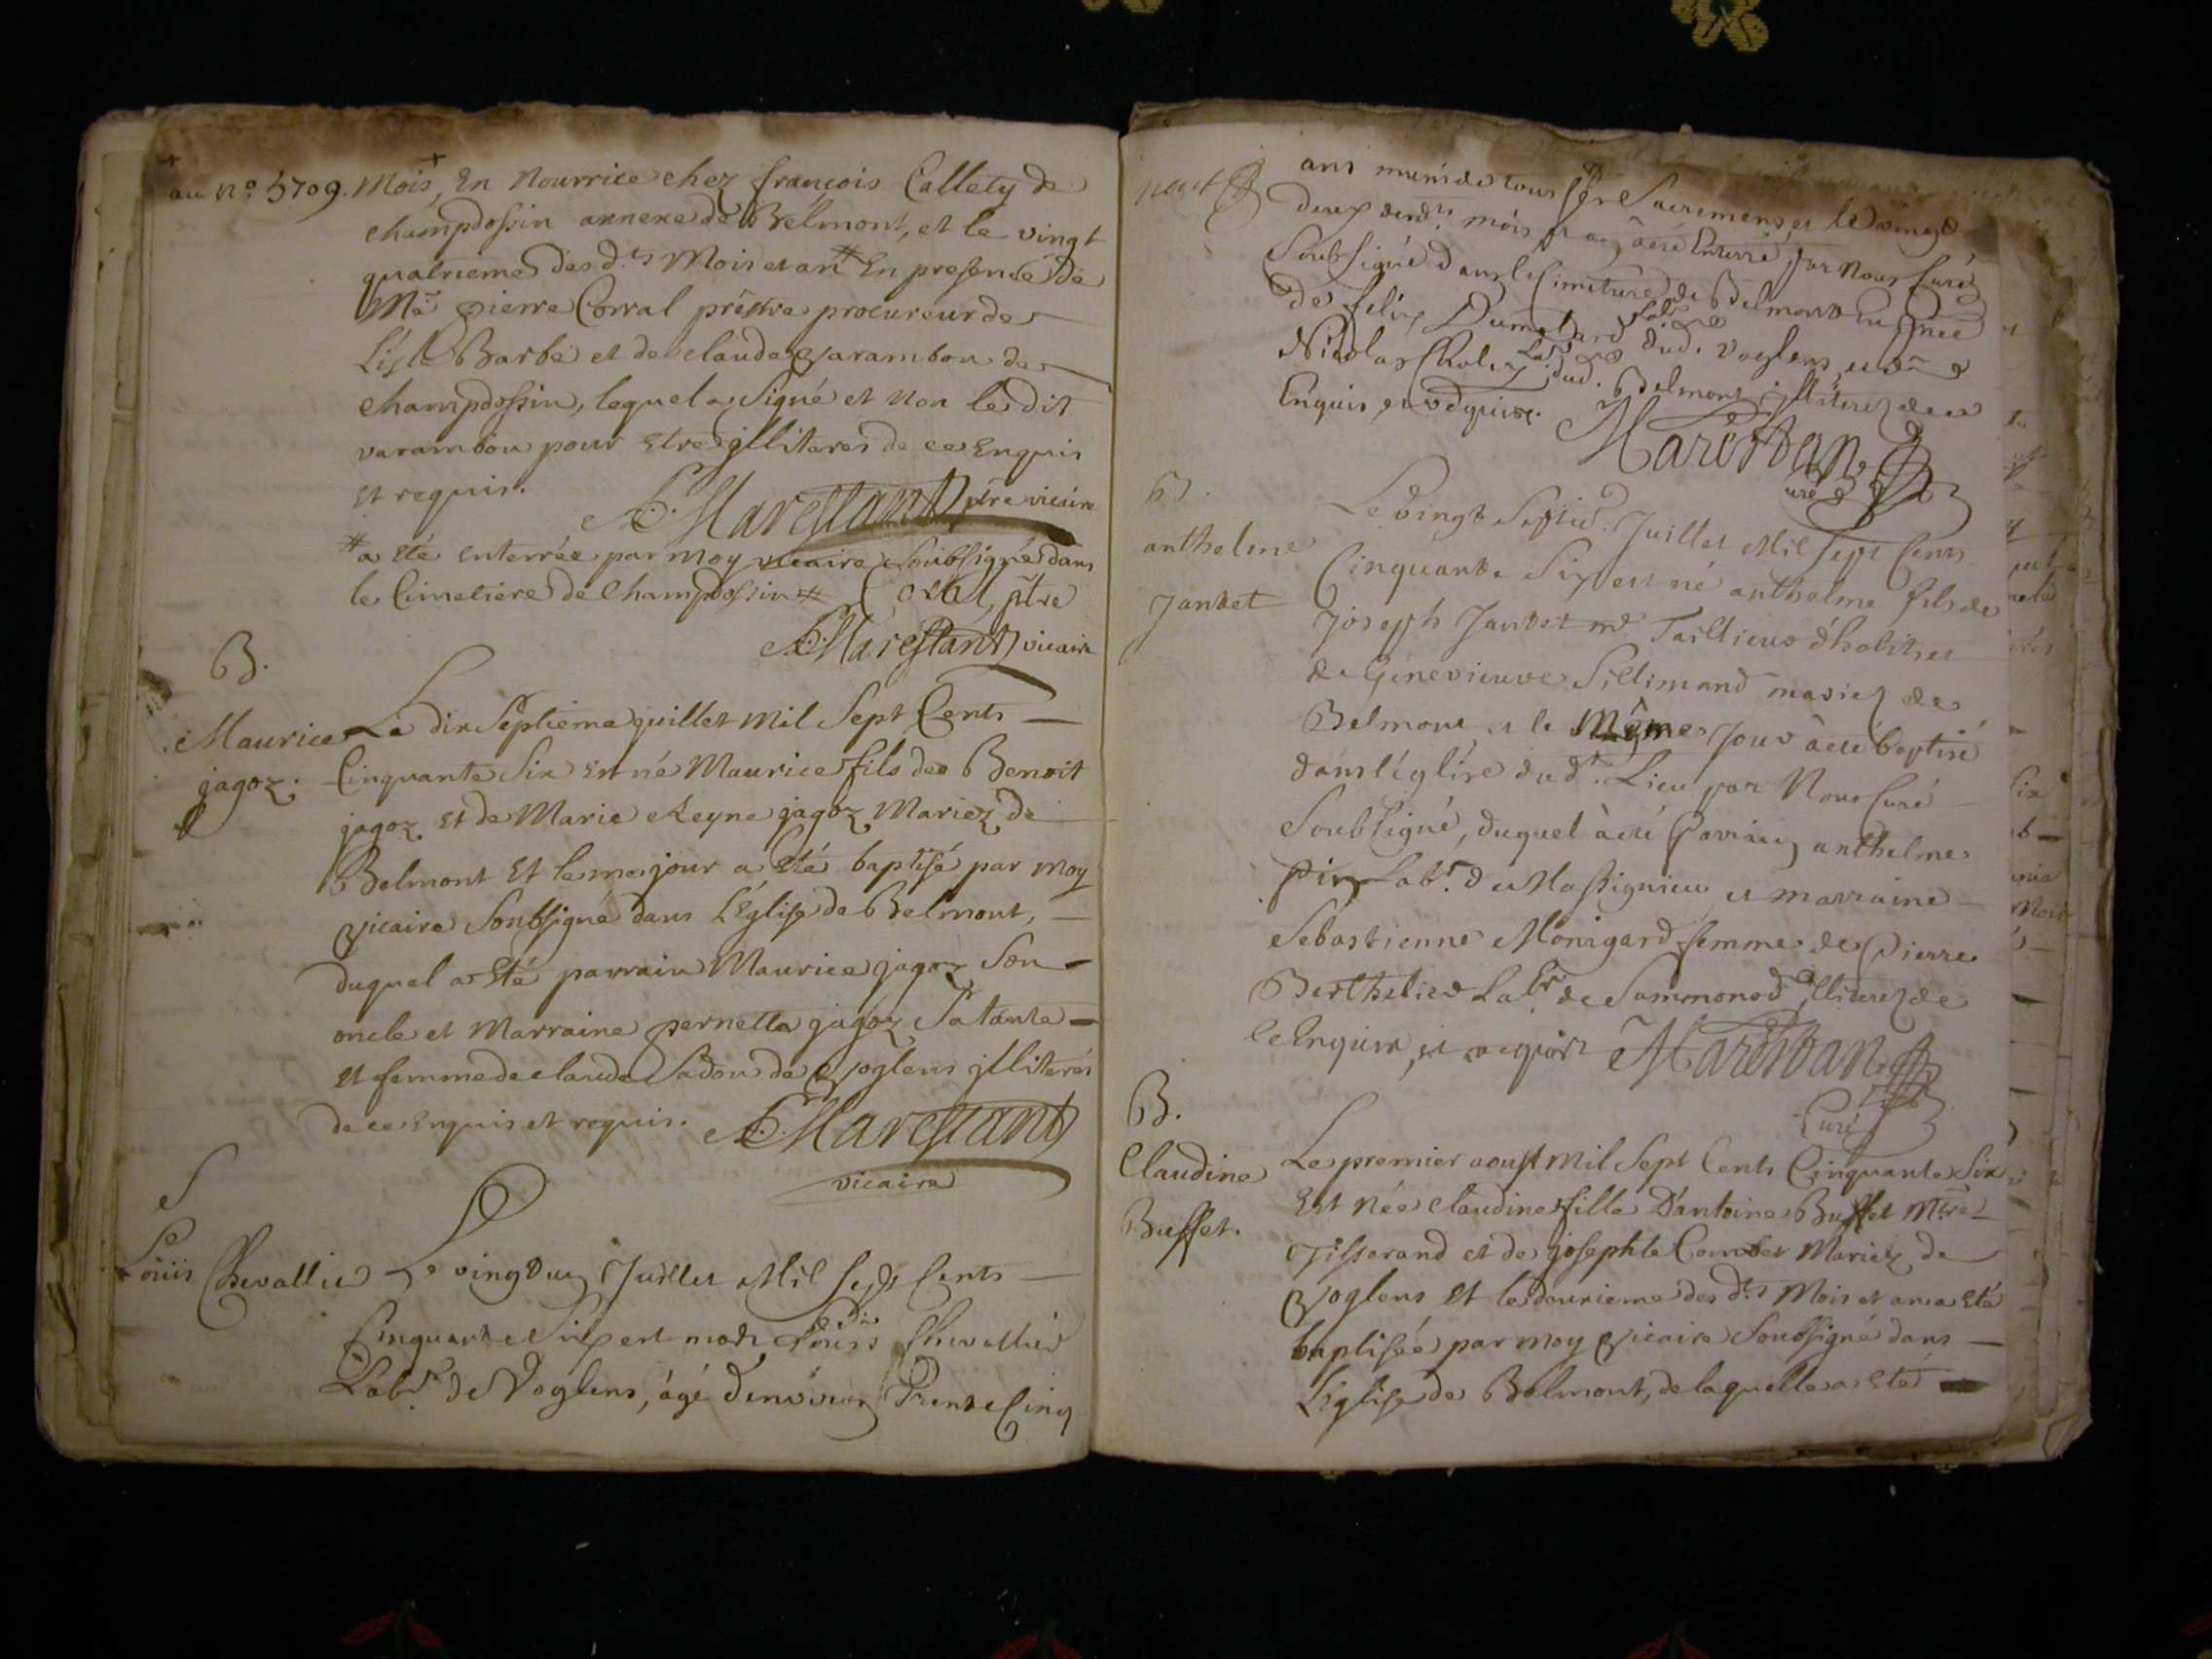 au no. 5709. Mois, En Nourrice chez françois Callety de
champdossin annexe de Belmont, et le vingt
quatrieme des d.ts Mois et an # En presence de
Me pierre Corral prêtre procureur de
L'isle Barbe et de claude Varambon de
champdossin, lequel a Signé et non le dit
varambon pour Etre illiteres de ce Enquis
et requis. Marestant ptre vicaire
# a Eté enterrée par moy vicaire soubsigné dans
le Cimetiere de Champdossin # ptre
Marestant vicaire
B.
Maurice
jagoz.
Le dix Septieme juillet Mil Sept Cents
Cinquante Six Est né Maurice fils de Benoit
jagoz Et de Marie Reyne jagoz Mariez de
Belmont Et le me jour a Eté baptisé par moy
Vicaire Soubsigné dans L'Eglise de Belmont,
duquel a Eté parrain Maurice jagoz Son
oncle et Marraine pernette jagoz Sa tante
Et femme de claude Sadou de Voglens illiterés
de ce Enquis et requis. Marestant
vicaire
S
Louis Chevallie
Le vingt un Juillet Mil Sept Cents
Cinquante Six est mort Louis Chevallié
Labr. de Voglens, âgé d'environ Trente Cinq
ans muni de tous ses Sacremens et le vingt
deux desd.ts mois et an à eté Enterré par Nous Curé
Soubsigné dans le Cimetiere de Belmont En
de felix Dumolard Labr dud. Voglens, et
Nicolas Labr dud. Belmont illiterez de ce
Enquis et requis. Marestan
curé
B.
anthelme
Jantet
Le vingt Sept Juillet Mil Sept Cents
Cinquante Six est né anthelme fils de
Joseph Jantet Tailleur d'habits et
de Genevieuve Sillimand mariez de
Belmont et le Même Jour à eté baptisé
dans l'église dudt. Lieu par Nous Curé
Soubsigné, duquel à eté Parrain anthelme
Pin Labr. de Massignieu et marraine
Sebastienne Monigard femme de Pierre
Berthelier Labr de Sammonod illiterez de
ce Enquis, et requis Marestan
Curé
B.
Claudine
Buffet.
Le premier aoust Mil Sept Cents Cinquante Six
Est Née claudine fille D'antoine Buffet Mtre
Tisserand et de josephte Combet Mariez de
Voglens Et le deuxieme des d.ts Mois et an a Eté
baptisée par moy Vicaire Soubsigné dans
L'Eglise de Belmont, de laquelle a Eté